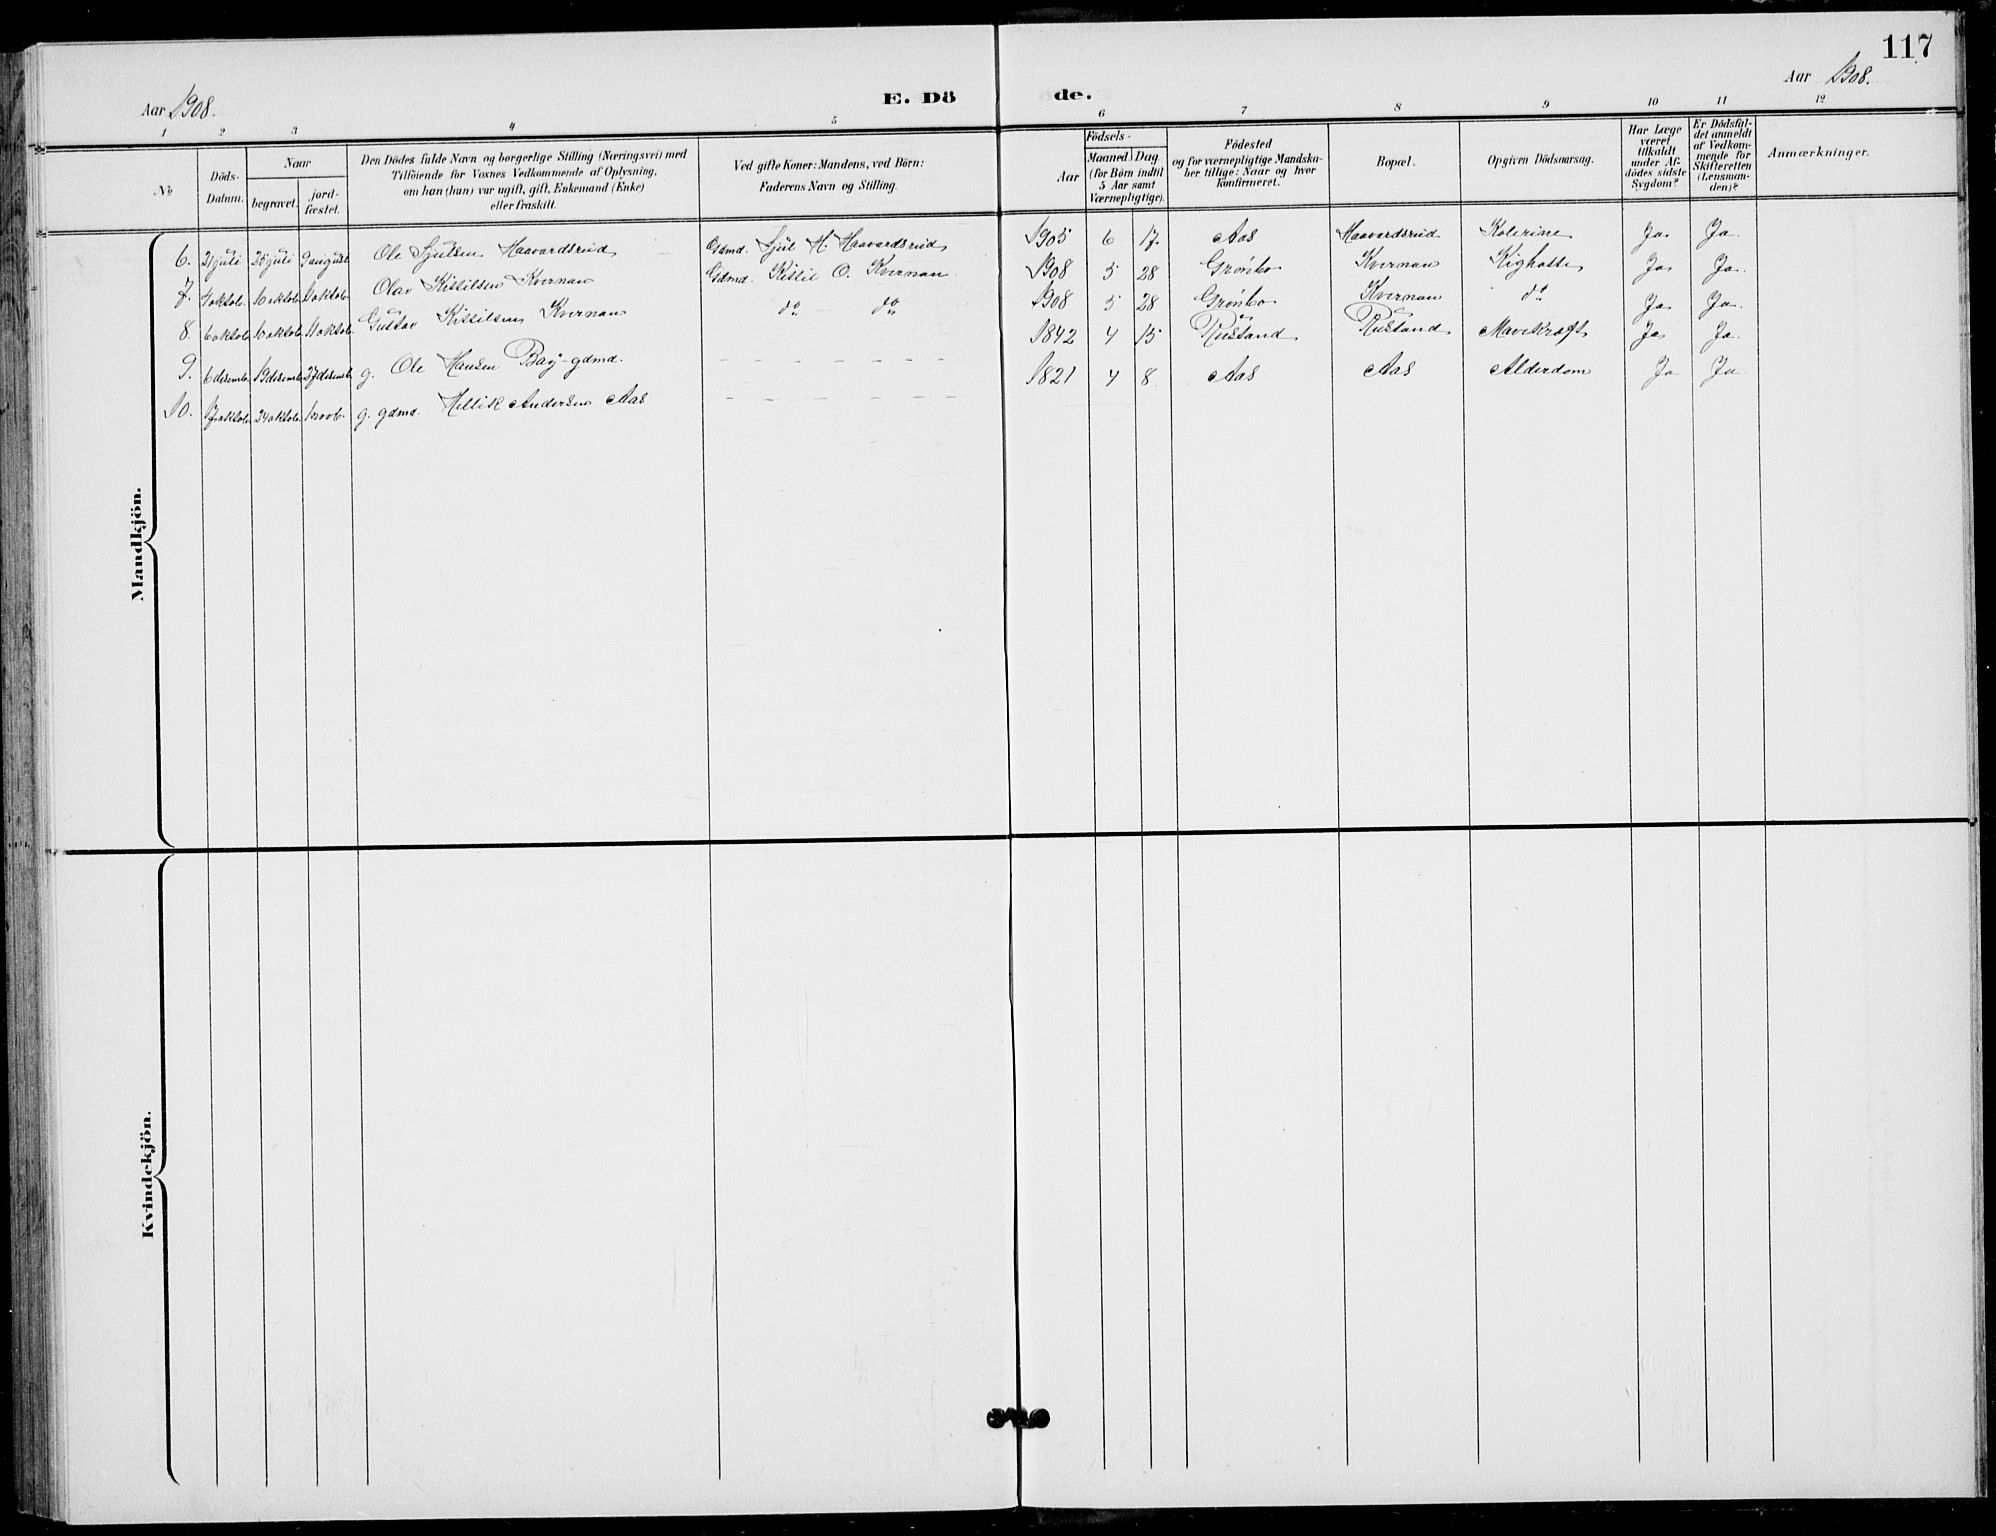 117
Aar 1908.
E. Dö
de.
Aar 1908.
1 2 3 4 5 6 7 8 9 10 11 12
No
Döds-
Datum.
Naar
begravet.
jord-
fæstet.
Den Dödes fulde Navn og borgerlige Stilling (Næringsvei) med
Tilföiende for Voxnes Vedkommende af Oplysning,
om han (hun) var ugift, gift, Enkemand (Enke)
eller fraskilt.
Ved gifte Koner: Mandens, ved Börn:
Faderens Navn og Stilling.
Födsels-
Aar
Maaned. Dag.
(for Börn indtil
5 Aar samt
Værnepligtige).
Födested
og for værnepligtige Mandska-
ber tillige: Naar og hvor
konfirmeret.
Bopæl.
Opgiven Dödsaarsag.
Har Læge
været
tilkaldt
under Af-
dödes sidste
Sygdom?
Er Dödsfal-
det anmeldt
af Vedkom-
mende for
Skifteretten
(Lensman-
den)?
Anmærkninger.
Mandkjön.
6. 21 juli 25 juli 9 august Ole Sjulsen Haavardsrud Gdmd. Sjul H. Haavardsrud 1905 6 17. Aas Haavardsrud Kolerine Ja Ja.
7. 4 oktob. 10 oktob. 11 oktob. Olav Kittilsen Kvernan Gdmd. Kittil O. Kvernan 1908 5 28 Grønbo Kvernan Kighoste Ja Ja.
8. 6 oktob. 10 oktob. 11 oktob. Gustav Kittilsen Kvernan do do 1908 5 28 Grønbo Kvernan do Ja Ja.
9. 6 desemb. 19 desemb. 27 desemb. g. Ole Hansen Bay - gdmd. - - - - - - - 1842 4 15 Rustand Rustand Mavekræft Ja Ja.
10. 17 oktob. 24 oktob. 1 novb. g. gdmd. Mellik Andersen Aas - - - - - - - 1821 4 8. Aas Aas Alderdom Ja Ja.
Kvindekjön.